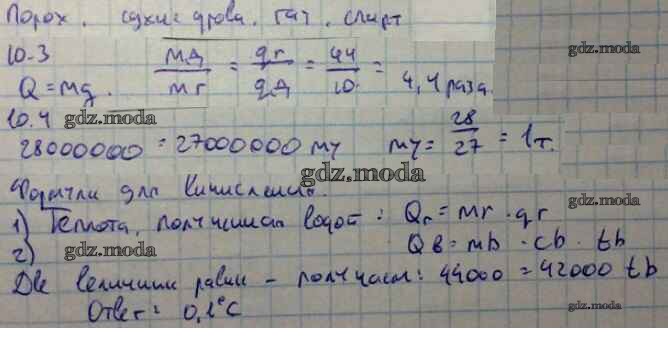 Порох. сухие дрова. газ. спирт
10.3 Q = mq. mд/mг = qг/qд = 44/10 = 4,4 раза. gdz.moda
10.4 gdz.moda
28000000 = 27000000 mу mу = 28/27 = 1т. gdz.moda
gdz.moda
Формулы для
1) Теплота, полученная водой: Qг = mг · qг gdz.moda
2) Qв = mв · cв · tв
Две величины равны – получаем: 44000 = 42000 tв
gdz.moda
Ответ: 0,1°C
gdz.moda gdz.moda